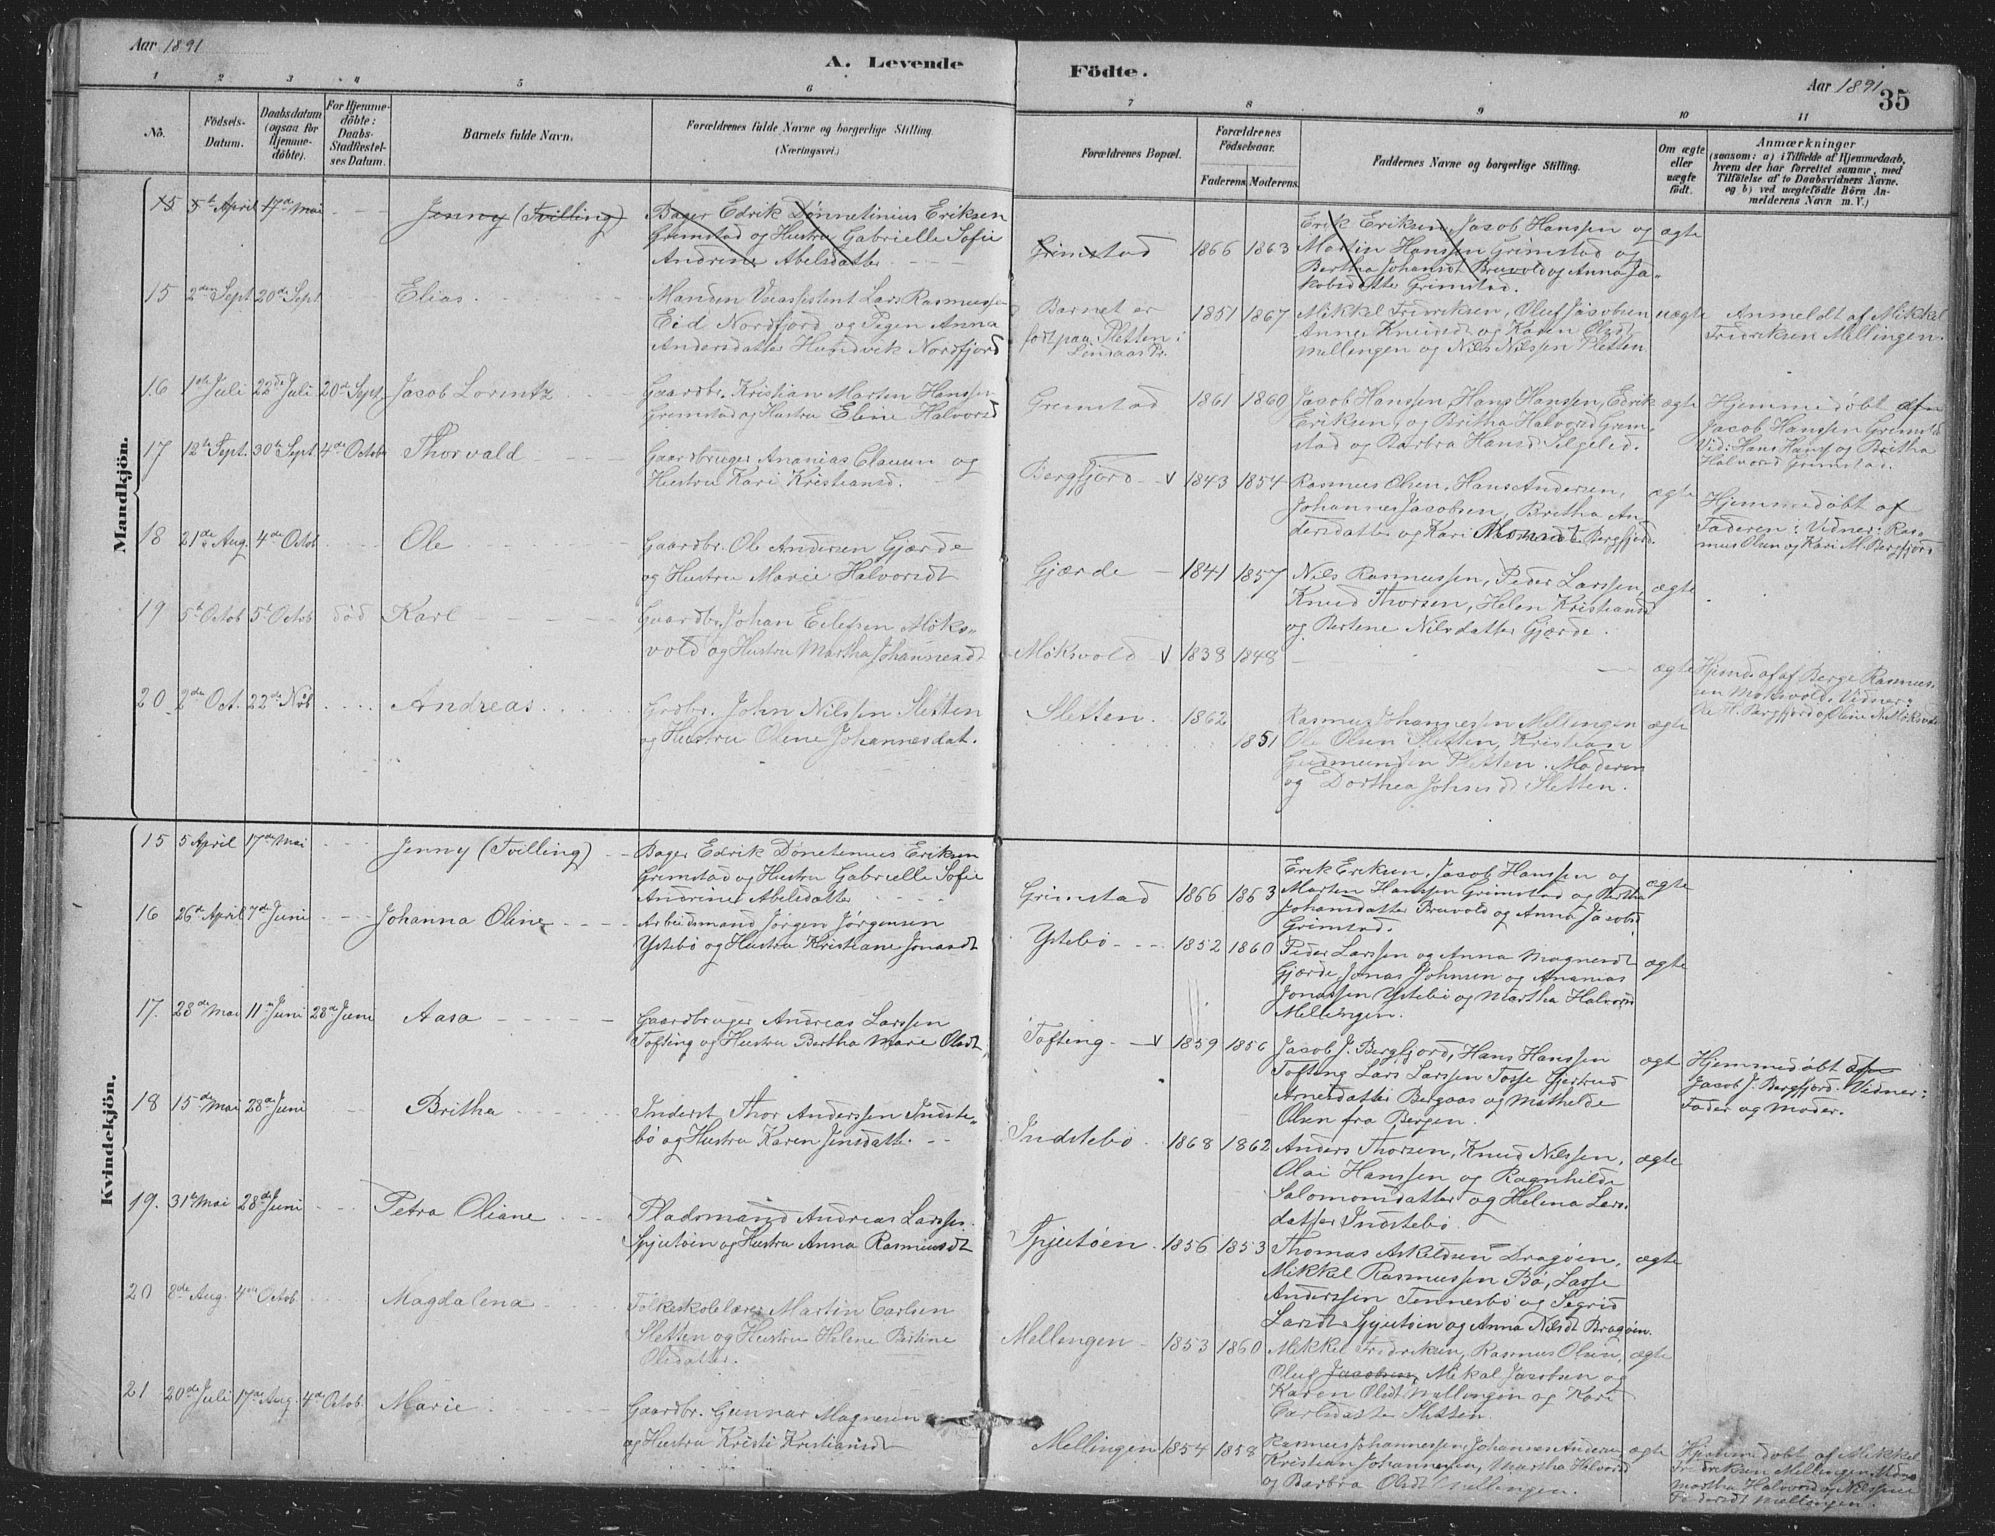 Aar 1891
A. Levende
Födte.
Aar 1891
35
1 2 3 4 5 6 7 8 9 10 11
No.
Födsels-Datum.
Daabsdatum (ogsaa for Hjemme-döbte).
For Hjemme-döbte: Daabs-Stadfæstelses Datum.
Barnets fulde Navn.
Forældrenes fulde Navne og borgerlige Stilling.
(Næringsvei.)
Forældrenes Bopæl.
Forældrenes Födselsaar.
Faderens. Moderens.
Faddernes Navne og borgerlige Stilling.
Om ægte eller uægte födt.
Anmærkninger
(saasom: a) i Tilfælde af Hjemmedaab,
hvem der har forrettet samme, med
Tilföielse af to Daabsvidners Navne.
og b) ved uægtefödte Börn An-
melderens Navn m. V.)
Mandkjön.
15 5te April 17de Mai Jenny (Tvilling)
Bager Edrik Dønnetinius Eriksen
Grimstad og Hustru Gabrielle Sofie
Andrine Abelsdatter
Grimstad 1866 1863
Erik Eriksen, Jacob Hanssen og
Martin Hanssen Grimstad og
Bertha Johansdt Bruvold og Anna Ja-
kobsdatter Grimstad.
ægte
15 2den Sept 20de Sept Elias
Manden Lars Rasmussen
Eid Nordfjord og Pigen Anna
Andersdatter Hundvik Nordfjord
Barnet er
født paa Sletten i
1851 1867
Mikkel Fridriksen, Oluf Jacobsen
Anne Knudsdt og Karen Olsdt
Mellingen og Nils Nilssen Sletten
uægte
Anmeldt af Mikkel
Fridriksen Mellingen.
16 1ste Juli 22de Juli 20de Sept Jacob Lorentz
Gaardbr. Kristian Martin Hanssen
Grimstad og Hustru Eline Halvorsd
Grimstad 1861 1860
Jacob Hanssen, Hans Hanssen, Edrik
Eriksen, og Britha Halvorsd Grim-
stad og Barbra Hansd
ægte
Hjemmedøbt af
Jacob Hanssen Grimstad
Vid: Hans Hanss og Britha
Halvorsd Grimstad.
17 12te Sept. 30te Sept 4de Octob Thorvald
Gaardbruger Ananias Clausen og
Hustru Kari Kristiansd.
Bergfjord V 1843 1854
Rasmus Olsen, Hans Andersen,
Johannes Jacobsen, Britha An-
dersdatter og Kari Bergfjord.
ægte
Hjemmedøbt af
Faderen: Vidner: Ras-
mus Olsen og Kari M. Bergfjord
18 21de Aug. 4de Octob Ole
Gaardbr. Ole Andersen Gjærde
og Hustru Marie Halvorsdt
Gjærde 1841 1857
Nils Rasmussen, Peder Larssen,
Knud Thorsen, Helen Kristiansd
og Bertene Nilsdatter Gjærde.
ægte
19 5te Octob 5te Octob død Karl
Gaardbr. Johan Eilefsen Møks-
vold og Hustru Martha Johannesdt
Møksvold V 1838 1848
ægte
Hjemd. af Berge Rasmus-
sen Møksvold. Vidner:
20 2den Oct. 22de Nob Andreas
Grdbr. John Nilssen Sletten
og Hustru Oline Johannesdat.
Sletten. 1862 1851
Rasmus Johannessen Mellingen
Ole Olsen Sletten, Kristian
Gudmundsen Sletten. Moderen
og Dorthea Johnsdt Sletten.
ægte
Kvindekjön.
15 5 April 17de Mai Jenny (Tvilling)
Bager Edrik Dønetenius Eriksen
Grimstad og Hustru Gabrielle Sofie
Andrine Abelsdatter
Grimstad 1866 1863
Erik Eriksen, Jacob Hanssen og
Marten Hanssen Grimstad og Bertha
Johansdatter Bruvold og Anna Jacobsd
Grimstad.
ægte
16 26de April 7de Juni Johanna Oline
Arbeidsmand Jørgen Jørgensen
Ystebø og Hustru Kristiane Jonasdt
Ystebø 1852 1860
Peder Larssen og Anna Magnesdt
Gjærde, Jonas Johnsen og Ananias
Jonassen Ystebø og Martha Halvorsd
Mellingen.
ægte
17. 28de Mai 11te Juni 28de Juni Aasa
Gaardbruger Andreas Larssen
Tofting og Hustru Bertha Marie Olsdt
Tofting V 1859 1856
Jacob J. Bergfjord, Hans Hanssen
Tofting Lars Larssen Tosse Gjertrud
Arnesdatter Bergaas og Mathilde
Olsen fra Bergen.
ægt
Hjemmedøbt af
Jacob J. Bergfjord. Vidner:
Fader og Moder.
18 15de Mai 28de Juni Britha
Inderst Thor Anderssen Indste-
bø og Hustru Karen Jensdatt.
Indstebø 1868 1862
Anders Thorsen, Knud Nilssen,
Olai Hanssen og Ragnhilde
Salomonsdatter og Helena Lars-
datter Indstebø.
ægte
19. 31te Mai 28de Juni Petra Oliane
Pladsmand Andreas Larssen
Spjutøen og Hustru Anna Rasmusdt
Spjutøen 1856 1853
Thomas Askildsen Dragøen,
Mikkel Rasmussen Bø, Lasse
Anderssen Tennesbø og Segrid
Larsdt Spjutøen og Anna Nilsdt Dragøen.
ægte
20 8de Aug. 4de Octob. Magdalena
Folkeskolelærer Martin Carlsen
Sletten og Hustru Helene Bertine
Olsdatter.
Mellengen 1853 1860
Mikkel Fridriksen, Rasmus Olsen,
Oluf Jacobsen, Mikal Jacobsen og
Karen Olsdt Mellingen og Kari
Carlsdatter Sletten.
ægte
21 20de Juli 17de Aug. 4de Octob. Marie
Gaardbr. Gunnar Magnesen
og Hustru Kristi Kristiansdt
Mellingen 1854 1858
Rasmus Johannessen, Johannes Andersen
Kristian Johannessen, Martha Halvorsd
og Barbra Olsdt Mellingen.
ægte
Hjemmedøbt af Mikkel
Fridriksen Mellingen. Vidner
Martha Halvorsd og
Mellingen.